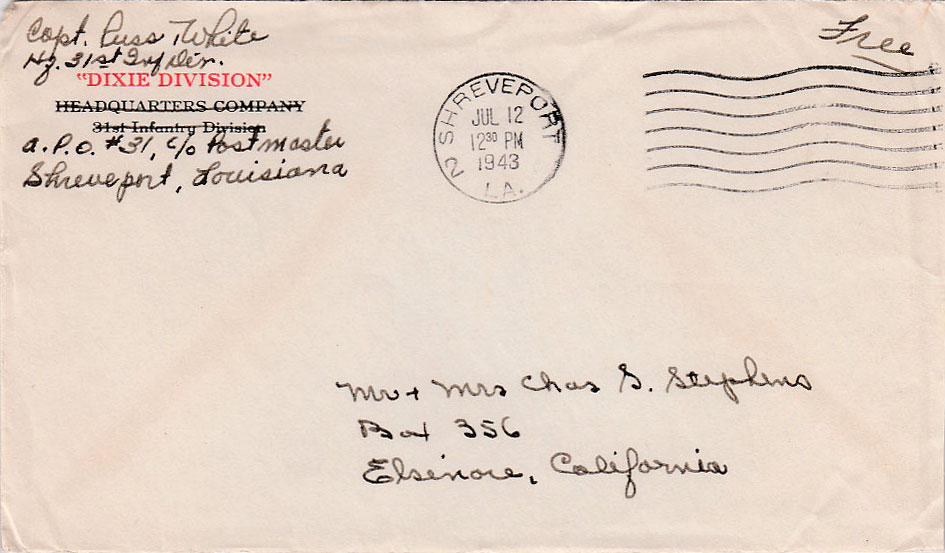 Capt. Russ White
Hq. 31st Inf Div.
"DIXIE DIVISION"
HEADQUARTERS COMPANY
31st Infantry Division
A.P.O. #31, c/o Postmaster
Shreveport, Louisiana
SHREVEPORT
JUL 12
12 30 PM
1943
2
LA.
Free
Mr + Mrs Chas S. Stephens
Box 356
Elsinore, California